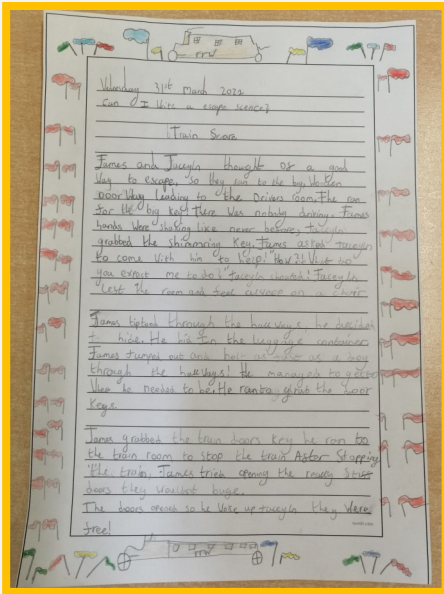 Wenday 31st March 2021
Can I Write a escape scence?
Train Scare
James and Jaceyln thought of a good
Way to escape, so they ran to the big, Wooden
Door Way leading to the Drivers room. The ran
for the big key! There Was nobidy driving. James
hands Were shaking like never before, Jaceyln
grabbed the shimmring Key. James asked Jaceyln
to come With him to help! How?! What do
you expect me to do! "Jaceyln shouted! Jaceyln
left the room and on a chair
James tiptoed through the hallways, he decided
to hide. He hid In the luggage container
James Jumped out and as as a boy
through the hallways! He managed to get to
Were he needed to be. He ran to grab the door
Keys
James grabbed the train doors Key he ran to
the train room to stop the train After Stopping
the train, James tried opening the really stiff
doors they wouldnt buge.
The doors opened so he Woke up Jaceyln they Were
free!